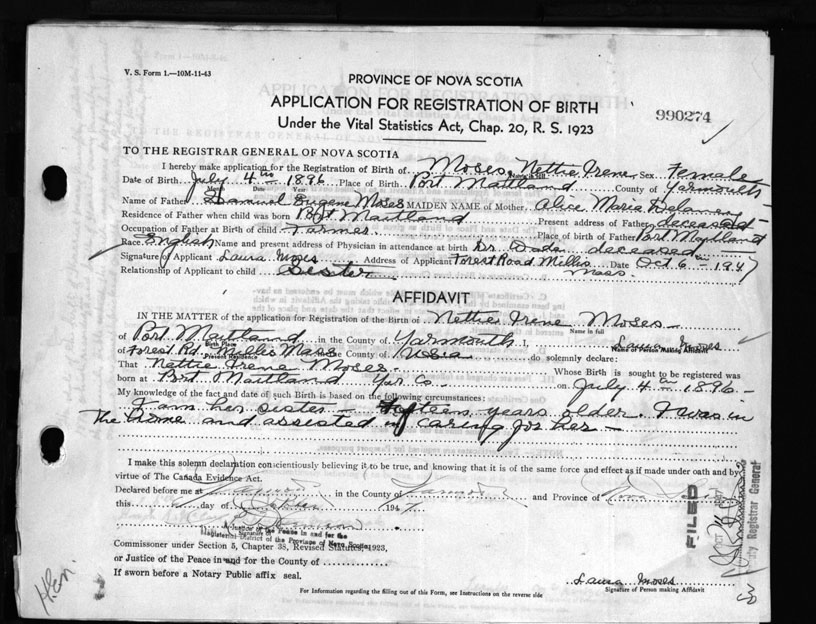 V. S. Form 1.—10M-11-43
PROVINCE OF NOVA SCOTIA
APPLICATION FOR REGISTRATION OF BIRTH
990274
Under the Vital Statistics Act, Chap. 20, R. S. 1923
TO THE REGISTRAR GENERAL OF NOVA SCOTIA
I hereby make application for the Registration of Birth of Moses, Nettie Irene Sex Female
Date of Birth July 4th 1896 Place of Birth Port Maitland County of Yarmouth
Name of Father Samuel Eugene Moses MAIDEN NAME of Mother Alice Maria
Residence of Father when child was born Port Maitland Present address of Father deceased
Occupation of Father at Birth of Child Farmer Place of birth of Father Port Maitland
Race English Name and present address of Physician in attendance at birth Dr. deceased
Signature of Applicant Laura Moses Address of Applicant Forest Road Millis Mass. Date Oct 6 - 1947
Relationship of Applicant to child Sister
AFFIDAVIT
IN THE MATTER of the application for Registration of the Birth of Nettie Irene Moses
Name in full
of Port Maitland in the County of Yarmouth I, Laura Moses
Birth Place
Name of Person Making Affidavit
of Forest Rd. Millis Mass County of do solemnly declare:
Present Residence
That Nettie Irene Moses Whose Birth is sought to be registered was
born at Port Maitland Yar Co. on July 4th 1896
My knowledge of the fact and date of such Birth is based on the following circumstances:
I am her sister - fifteen years older. I was in
the home and assisted in caring for her -
I make this solemn declaration conscientiously believing it to be true, and knowing that it is of the same force and effect as if made under oath and by
virtue of The Canada Evidence Act.
Declared before me at in the County of and Province of
this day of October 1947
Commissioner under Section 5, Chapter 38, Revised Statutes, 1923,
or Justice of the Peace in and for the County of
If sworn before a Notary Public affix seal.
Laura Moses
Signature of Person making Affidavit
For Information regarding the filling out of this Form, see Instructions on the reverse side
FILED
Deputy Registrar General